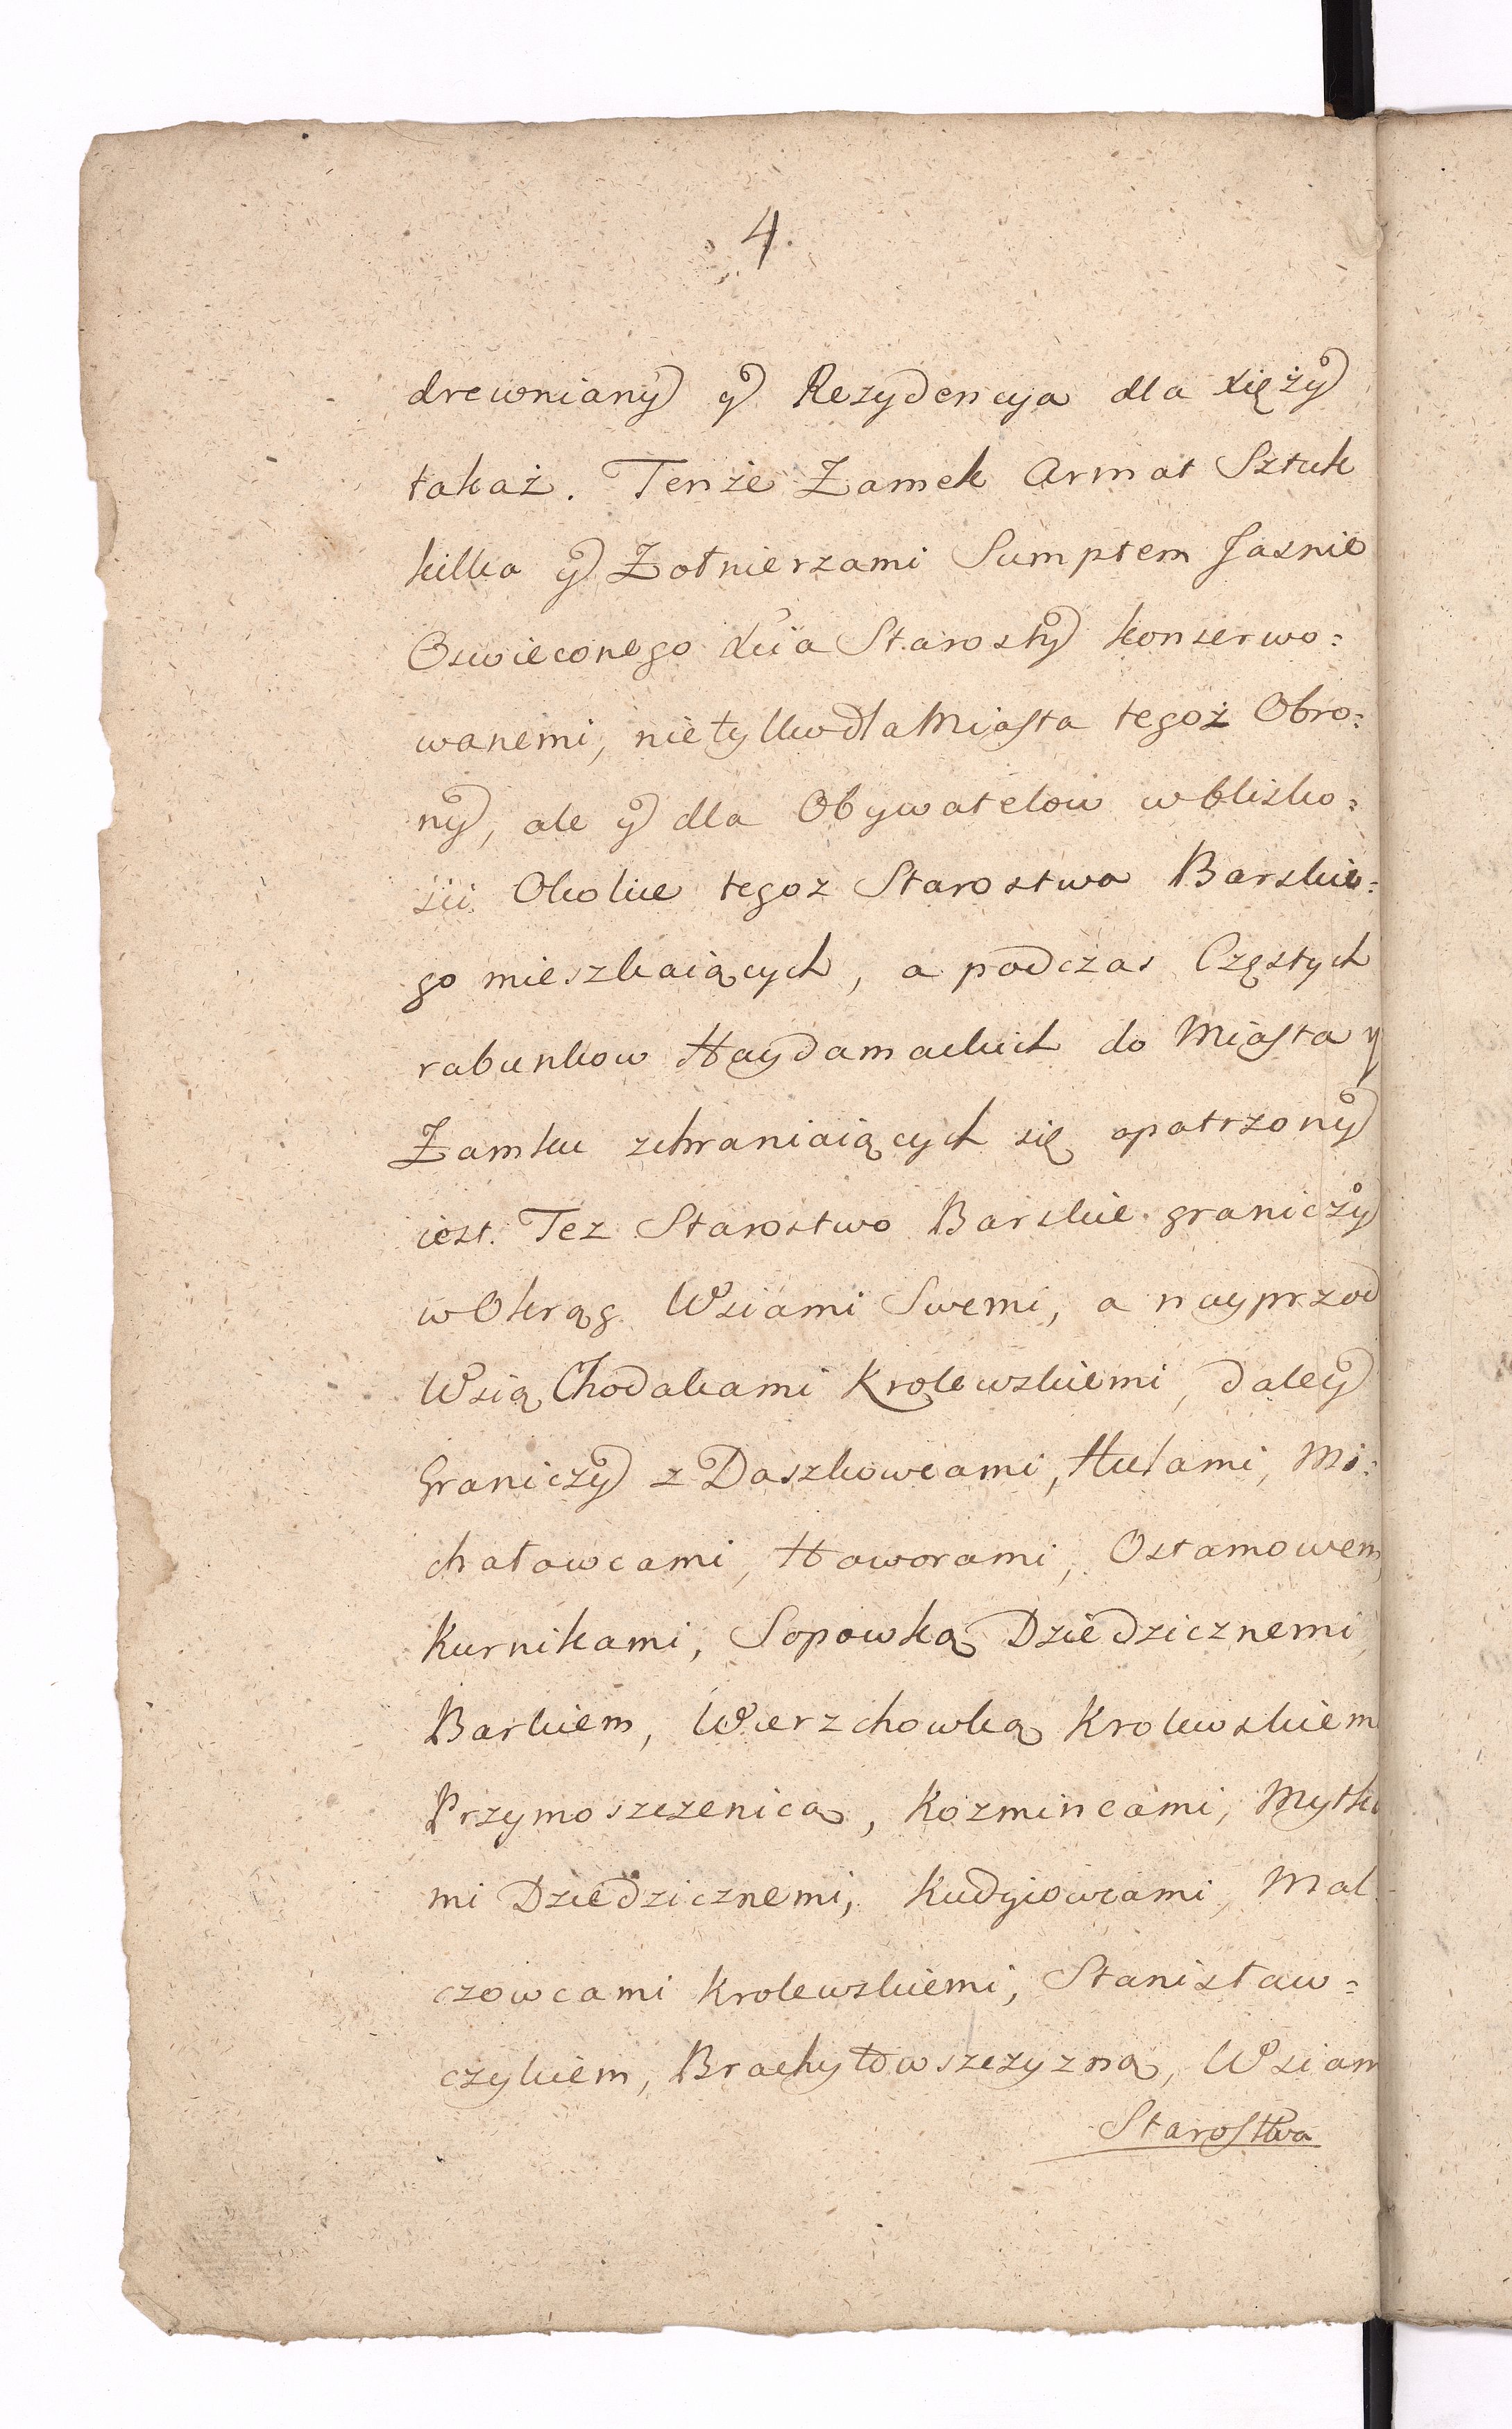 4.
drewniany y Rezydencya dla xięży
takaż. Tenże Zamek Armat Sztuk
kilka y Zołnierzami Sumptem Jasnie
Oswieconego Xcia Starosty konserwo:
wanemi, nietylko dla Miasta tegoż Obro:
ny, ale y dla Obywatelow w blisko:
ści Okolic tegoz Starostwa Barskie:
go mieszkaiących, a podczas Częstych
rabunkow Haydamackich do Miasta y
Zamku zchraniaiących się opatrzony
iest. Tez Starostwo Barskie graniczy
w Okrąg Wsiami Swemi, a nayprzod
Wsią Chodakami Krolewskiemi, daley
Graniczy z Daszkowcami, Hutami, Mi:
chałowcami, Haworami, Ostamowem
Kurnikami, Sopowką Dziedzicznemi,
Barkiem, Wierzchowką Krolewskiem
Przymoszczenicą, Kozmincami, Mytk
mi Dziedzicznemi, Kudyiowcami, Mal
czowcami Krolewskiemi, Stanisław:
czykiem, Brachyłowszczyzną, Wsiam
Starostwa